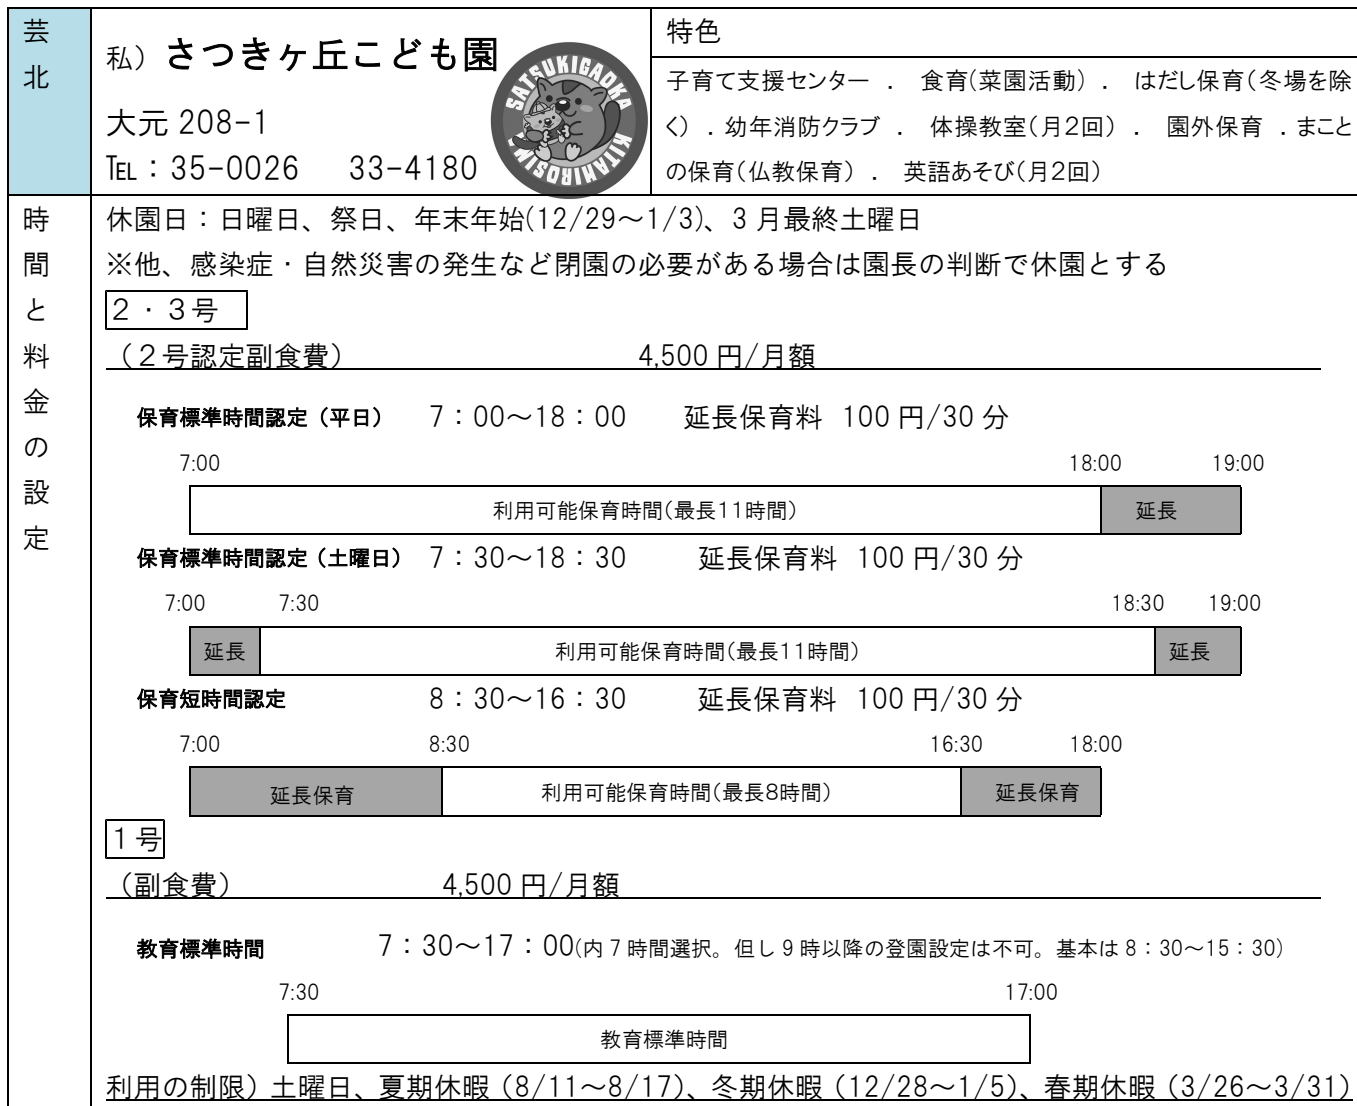 芸北
私）さつきヶ丘こども園
大元 208-1
℡：35-0026　33-4180
SATSUKIGAOKA KITAHIROSIMA
特色
子育て支援センター ． 食育(菜園活動) ． はだし保育(冬場を除
く) ．幼年消防クラブ ． 体操教室(月2回) ． 園外保育 ．まこと
の保育(仏教保育) ． 英語あそび(月2回)
時間と料金の設定
休園日：日曜日、祭日、年末年始(12/29～1/3)、3 月最終土曜日
※他、感染症・自然災害の発生など閉園の必要がある場合は園長の判断で休園とする
２・３号
（２号認定副食費） 4,500 円/月額
保育標準時間認定（平日） 7：00～18：00 延長保育料 100 円/30 分
7:00 18:00 19:00
利用可能保育時間(最長11時間) 延長
保育標準時間認定（土曜日） 7：30～18：30 延長保育料 100 円/30 分
7:00 7:30 18:30 19:00
延長 利用可能保育時間(最長11時間) 延長
保育短時間認定 8：30～16：30 延長保育料 100 円/30 分
7:00 8:30 16:30 18:00
延長保育 利用可能保育時間(最長8時間) 延長保育
１号
（副食費） 4,500 円/月額
教育標準時間 7：30～17：00(内 7 時間選択。但し 9 時以降の登園設定は不可。基本は 8：30～15：30)
7:30 17:00
教育標準時間
利用の制限）土曜日、夏期休暇（8/11～8/17)、冬期休暇（12/28～1/5)、春期休暇（3/26～3/31)